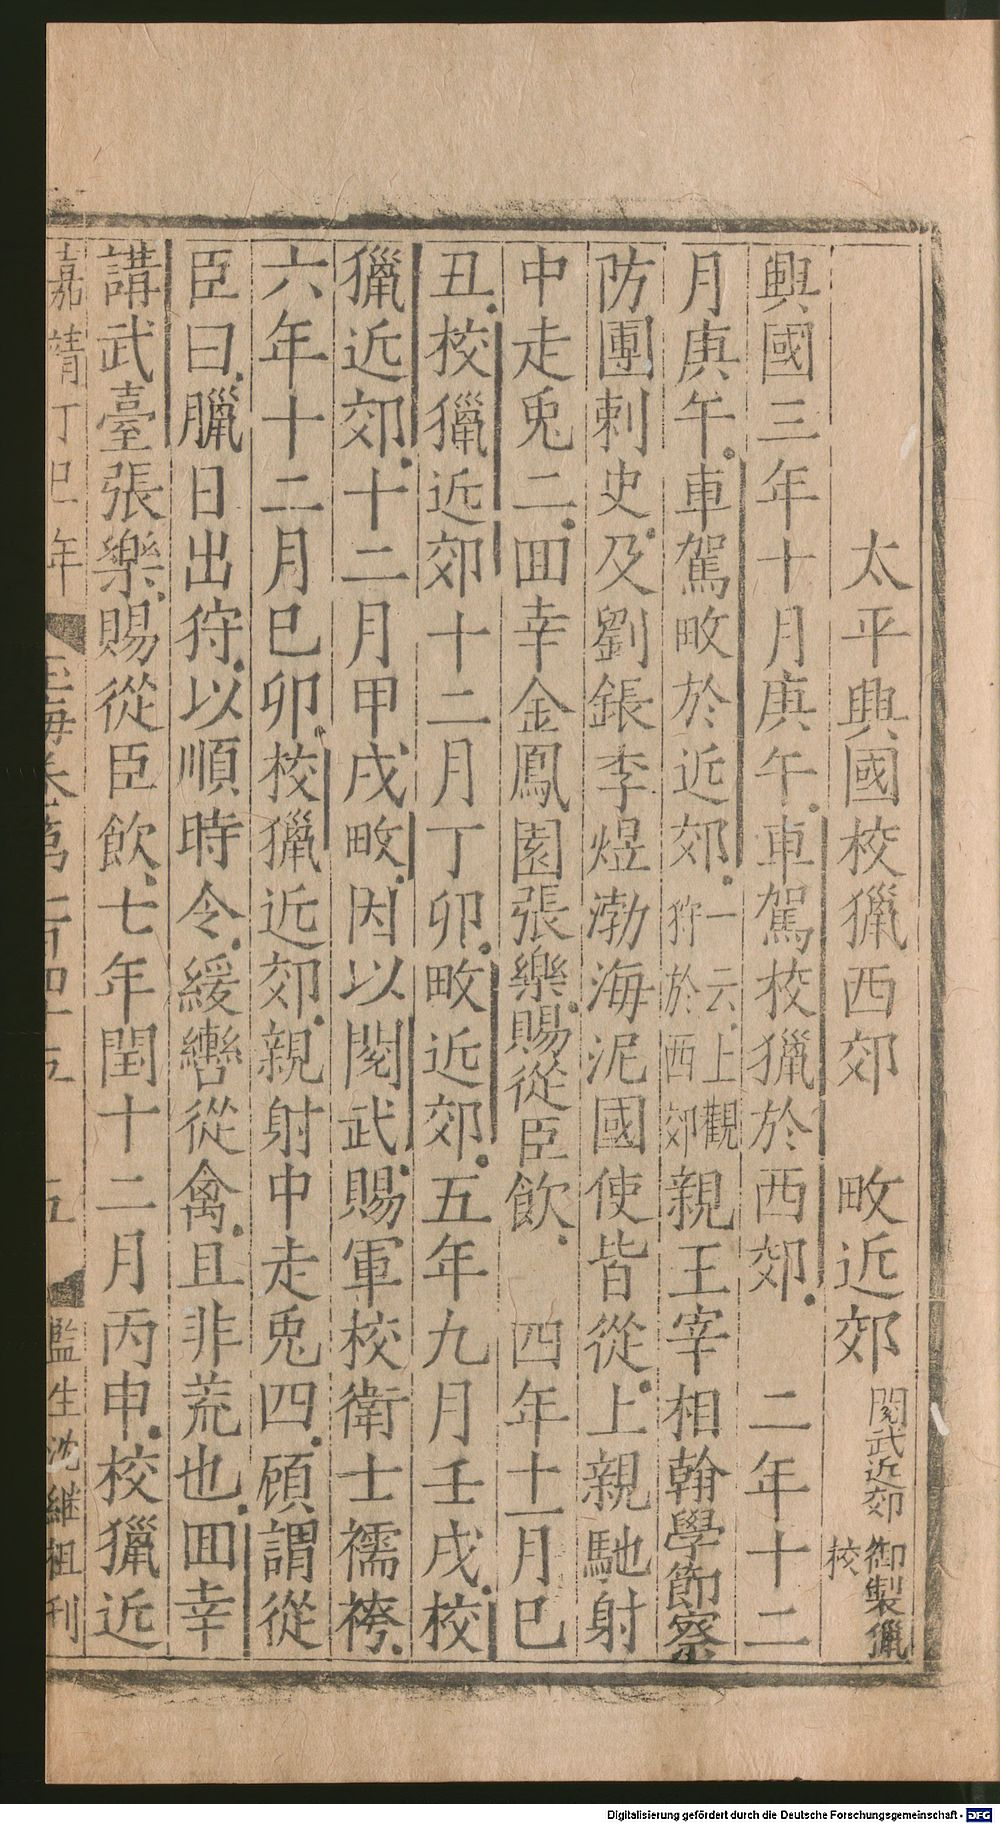 太平興國校獵西郊　畋近郊　閱武近郊　御製獵校
興國三年十月庚午車駕校獵於西郊　二年十二
月庚午車駕畋於近郊一云上觀狩於西郊親王宰相翰學節察
防團刺史及劉鋹李煜渤海泥國使皆從上親馳射
中走兎二囬幸金鳳園張樂賜從臣飲　四年十一月巳
丑校獵近郊十二月丁卯畋近郊五年九月壬戌校
獵近郊十二月甲戌畋因以閱武賜軍校衛士襦袴
六年十二月巳卯校獵近郊親射中走兎四頋謂從
臣曰臘日出狩以順時令緩轡從禽且非荒也囬幸
講武臺張樂賜從臣飲七年閏十二月丙申校獵近
嘉靖丁巳年　玉海卷一百四十五　五　監生沈継祖刊
Digitalisierung gefördert durch die Deutsche Forschungsgemeinschaft - DFG